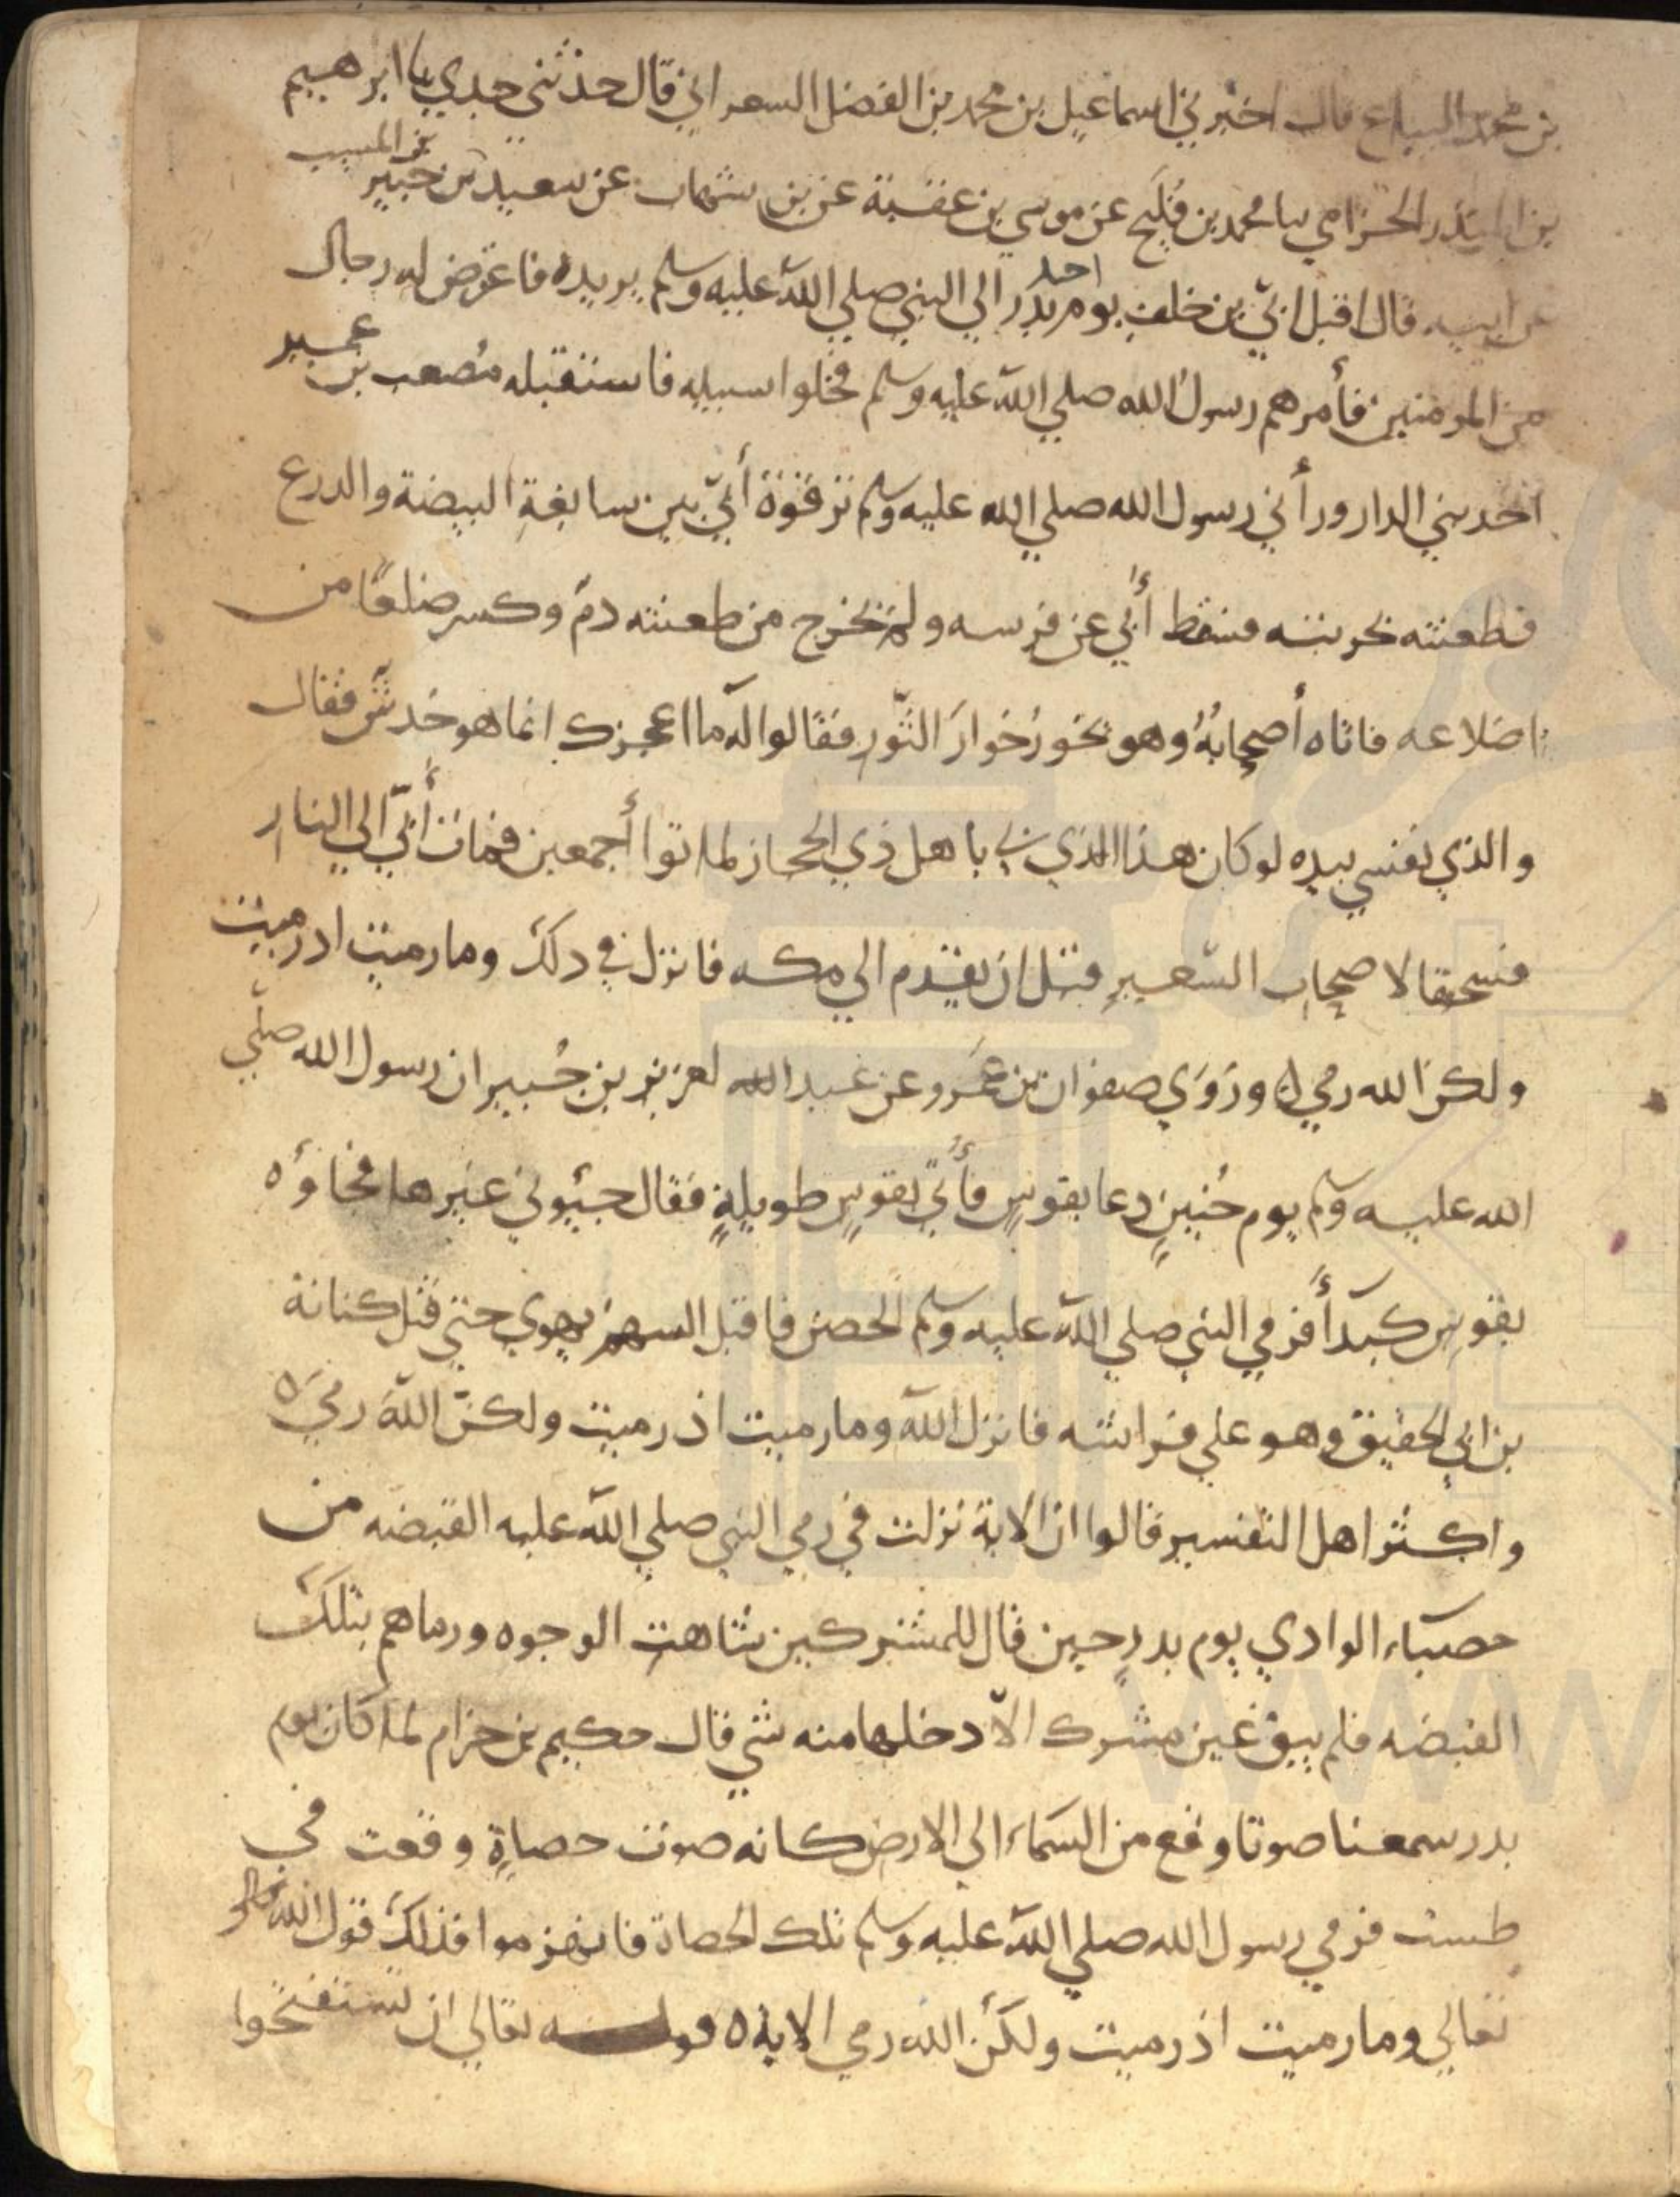 بن محمد البياع قال اخبرني اسماعيل بن محمد بن الفضل السعراني قال حدثني جدي با ابرهيم
بن المسيب
بن المنذر الحزامي سا محمد بن فليح عن موسي بن عقبة عن بن شهاب عن سعيد بن جبير
احد
عن ابيه قال اقبل ابيّ بن خلف يوم بدر الي النبي صلي الله عليه وسلم يريده فاعترض له رجال
من المومنين فأمرهم رسول الله صلي الله عليه وسلم فخلوا سبيله فاستقبله مُصعب بن عمير
احد بني الدار ورأني رسول الله صلي الله عليه وسلم ترقوة أبيّ بين سابغة البيضة والدرع
فطعنته بحربته فسقط أبي عن فرسه ولم يخرج من طعنته دم وكسر ضلعًا من
اضلاعه فاتاه أصحابهُ وهو يخور خوار الثور فقالوا له ما اعجزك انما هو خدش فقال
والذي نفسي بيده لو كان هذا الذي بي باهل ذي الحجاز لماتوا أجمعين فمات أبيّ الي النار
فسحقا لاصحاب السعير قبل ان يقدم الي مكه فانزل في دلك وما رميت اد رميت
ولكن الله رمي ه وروي صفوان بن عمرو عن عبد الله لعزيز بن جُبير ان رسول الله صلّي
الله عليه وسلم يوم حُنين دعا بقوس فأُتي بقوس طويلةٍ فقال جيئوني غيرها فجاؤه
بقوس كبدأ فرمي النبي صلي الله عليه وسلم الحصن فاقبل السهم يهوي حتي قتل كنانة
بن ابي الحقيق وهو علي فراشه فانزل الله وما رميت اذ رميت ولكنّ الله رمي ه
واكثر اهل التفسير قالوا ان الاية نزلت في رمي النبي صلي الله عليه القبضه من
حصباء الوادي يوم بدرٍ حين قال للمشركين شاهت الوجوه ورماهم بتلك
القبضه فلم يبق عين مشرك الاّ دخلها منه شي قال حكيم بن حزام لما كان يوم
بدر سمعنا صوتا وقع من السماء الي الارض كانه صوت حصاةٍ وقعت في
طست فرمي رسول الله صلي الله عليه وسلم تلك الحصاة فانهزموا فذلك قول الله
تعالي وما رميت اذ رميت ولكن الله رمي الاية ه قوله تعالي ان تستفتحوا